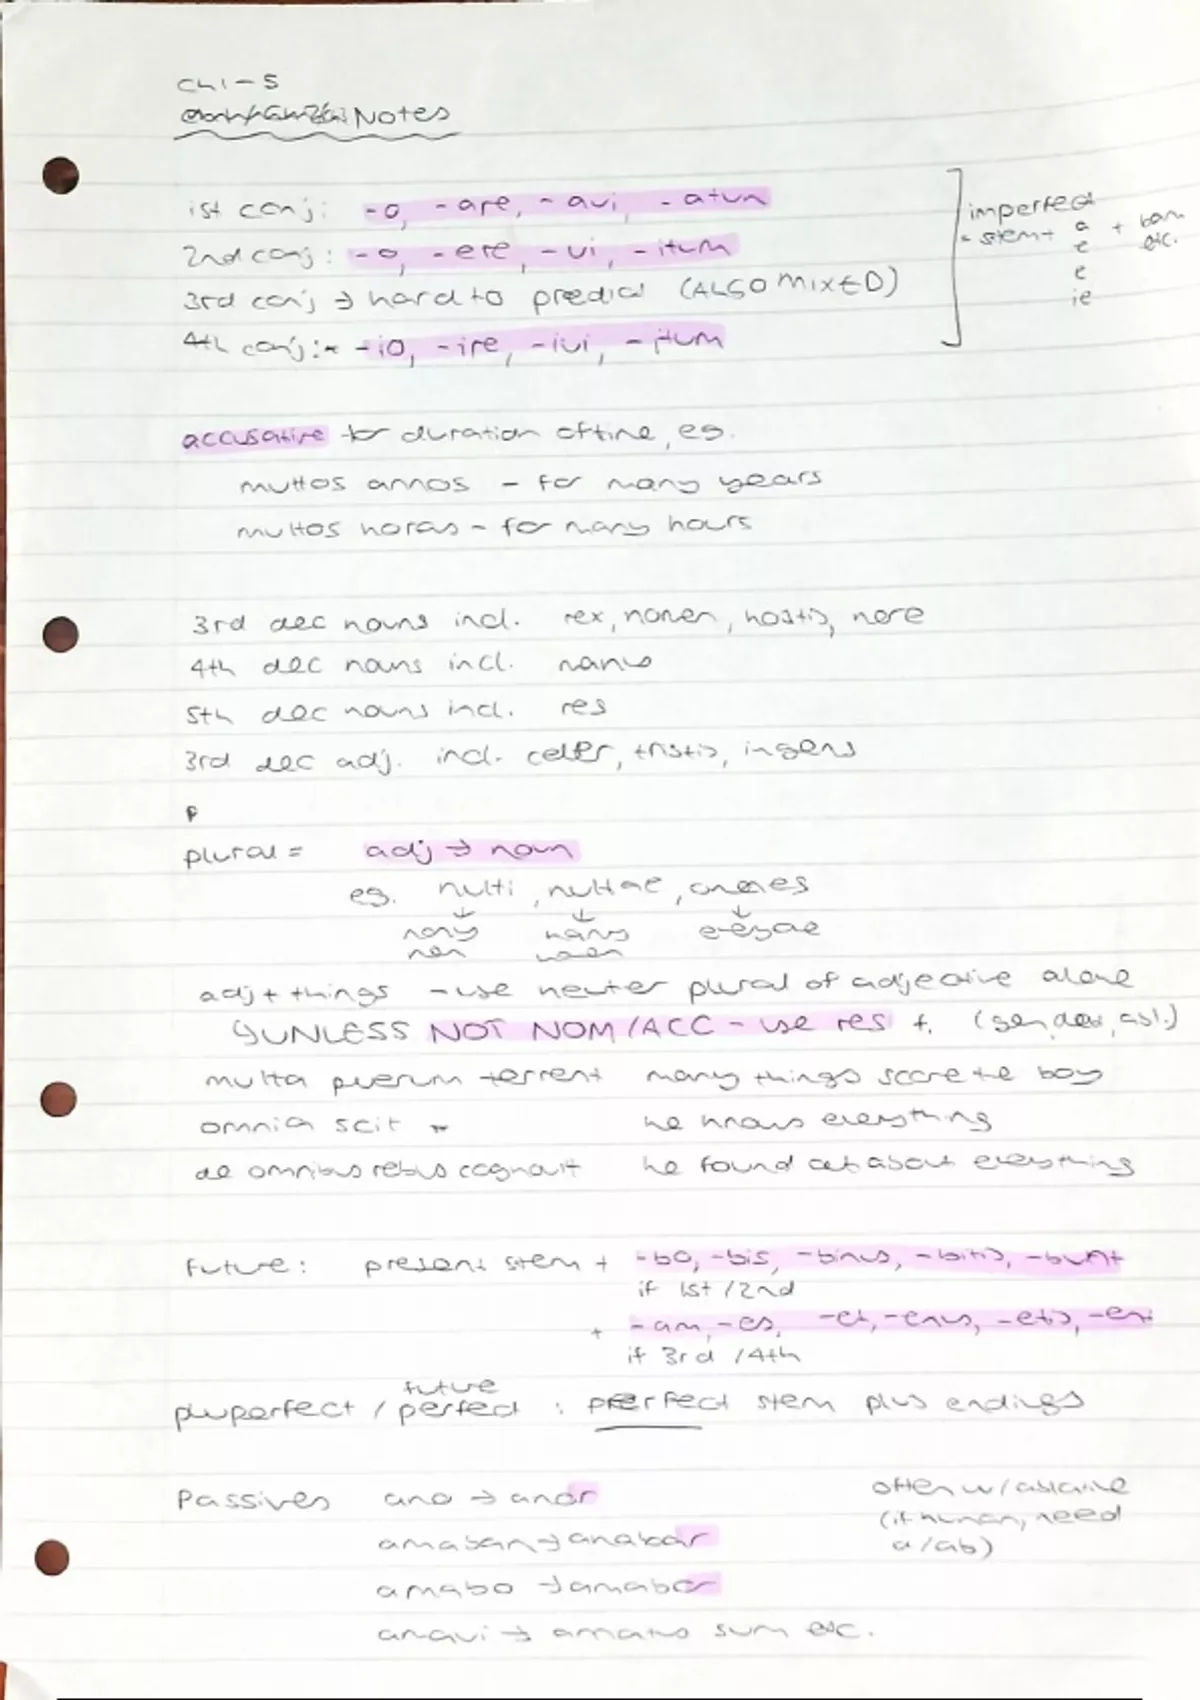 Ch 1-5
Notes
1st conj: -o, -are, -avi, -atum
2nd conj: -o, -ere, -vi, -itum
3rd conj → hard to predict (ALSO MIXED)
4th conj: -io, -ire, -ivi, -itum
imperfect
= stem + a + bam
e etc.
e
ie
accusative for duration of time, eg.
multos annos - for many years
multos horas - for many hours
3rd dec nouns incl. rex, nomen, hostis, mare
4th dec nouns incl. manus
5th dec nouns incl. res
3rd dec adj. incl. celer, tristis, ingens
P
plural = adj → noun
eg. multi, multae, omnes
↓ ↓ ↓
many many everyone
men women
adj + things - use neuter plural of adjective alone
UNLESS NOT NOM/ACC - use res f. (gen, dat, abl.)
multa puerum terrent many things scare the boy
omnia scit he knows everything
de omnibus rebus cognovit he found out about everything
future: present stem + -bo, -bis, -bimus, -bitis, -bunt
if 1st/2nd
+ -am, -es, -et, -emus, -etis, -ent
if 3rd/4th
future
pluperfect / perfect : perfect stem plus endings
Passives amo → amor
amabam → amabar
amabo → amabor
amavi → amatus sum etc.
often w/ablative
(if human, need
a/ab)